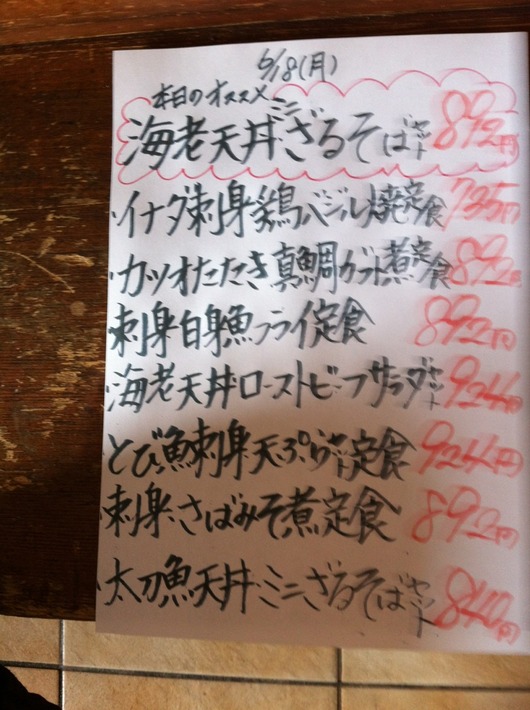 6/18(月)
本日のオススメ
海老天丼ミニざるそばセット 892円
・イナダ刺身鶏バジル焼定食 735円
・カツオたたき真鯛カブト煮定食 892円
刺身白身魚フライ定食 892円
・海老天丼ローストビーフサラダセット 924円
とび魚刺身天ぷらセット定食 924円
・刺身さばみそ煮定食 892円
・太刀魚天丼ミニざるそばセット 840円